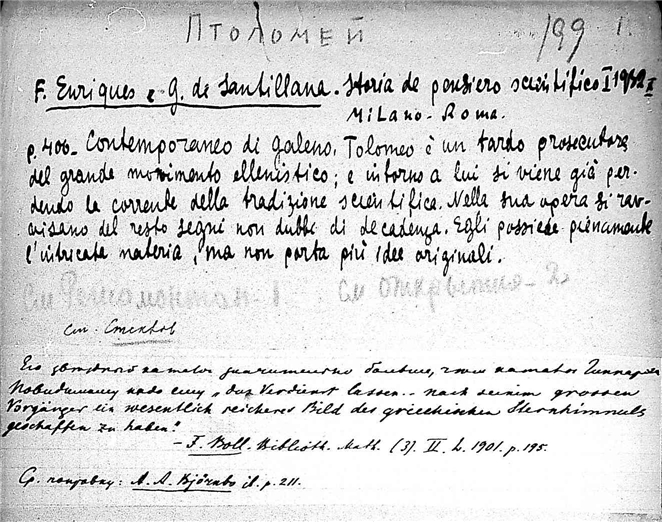 Птоломей 199 1.
F. Enriques e G. de Santillana. Storia de pensiero scientifico I 1932 X
Milano-Roma.
p. 400- Contemporaneo di Galeno. Tolomeo è un tardo prosecutore
del grande movimento ellenistico; e intorno a lui si viene già per-
dendo la corrente della tradizione scientifica. Nella sua opera si rav-
visano del resto segni non dubbi di decadenza. Egli possiede pienamente
l'intricata materia, ma non porta più idee originali.
см Региомонтан-1 см открытия-2
см. Стеклов
Его звездный каталог значительно больше, чем каталог Гиппарха
Повидимому надо ему „das Verdienst lassen.. nach seinem grossen
Vorgänger ein wesentlich reicheres Bild des griechischen Sternhimmels
geschaffen zu haben."
- F. Boll. Biblioth. Math. (3). II. L. 1901. p. 195.
Ср. поправку: A. A. Björnbo ib. p. 211.